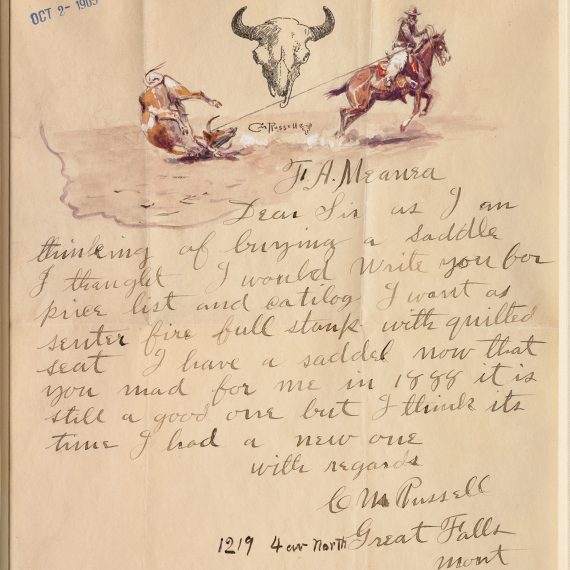 OCT 2- 1905
CM Russell
F. A. Meanea
Dear Sir as I am
thinking of buying a saddle
I thaught I would Write you for
price list and catilog I want a
senter fire full stank with quilted
seat I have a saddel now that
you mad for me in 1888 it is
still a good one but I think its
time I had a new one
with regards
C M Russell
1219 4 av North Great Falls
Mont